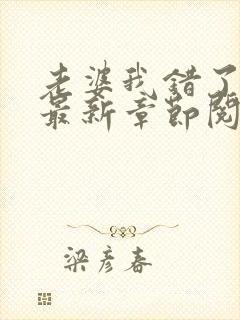 老婆我错了
最新章节阅
梁彦春